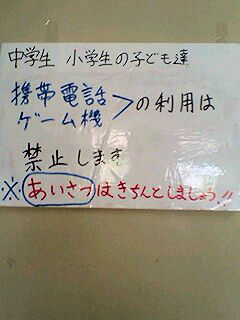 中学生 小学生の子ども達
携帯電話
ゲーム機 > の利用は
禁止します
※あいさつはきちんとしましょう!!